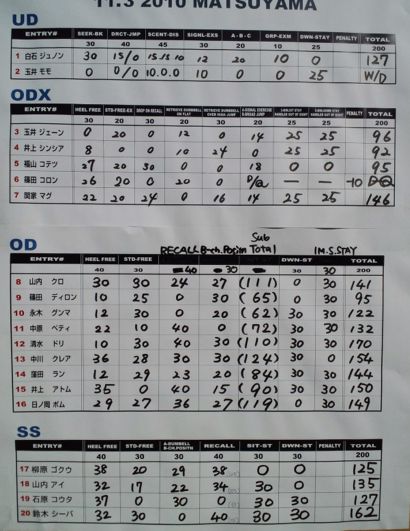 11.3 2010 MATSUYAMA
UD
ENTRY# SEEK-BK DRCT-JMP SCENT-DIS SIGNL-EXS A-B-C GRP-EXM DWN-STAY PENALTY TOTAL
30 40 45 30 20 10 25 200
1 白石 ジュノン 30 15/0 15.15.10 12 20 10 0 127
2 玉井 モモ 0 0/0 10.0.0 10 0 0 25 W/D
ODX
ENTRY# HEEL FREE STD-FREE-EX DROP ON RECALL RETRIEVE DUMBBELL ON FLAT RETRIEVE DUMBBELL OVER HIGH JUMP PENALTY TOTAL
200
3 玉井 ジェーン 0 20 0 12 0 14 25 25 96
4 井上 シンシア 8 0 0 10 24 0 25 25 92
5 福山 コテツ 27 20 30 0 0 18 0 0 95
6 篠田 コロン 26 20 0 20 0 D/Q — — -10 DQ
7 関家 マグ 22 20 24 0 16 14 25 25 146
OD
Sub
ENTRY# HEEL FREE STD-FREE RECALL Brch.Positn Total DWN-STY 1M.S.STAY TOTAL
40 30 40 30 30 30 200
8 山内 クロ 30 30 24 27 (111) 0 30 141
9 篠田 ディロン 10 25 0 30 (65) 0 30 95
10 永木 グンマ 12 30 0 20 (62) 30 30 122
11 中原 ベティ 22 10 40 0 (72) 30 30 132
12 清水 ドリ 10 30 40 30 (110) 30 30 170
13 中川 クレア 36 28 30 30 (124) 30 0 154
14 窪田 ラン 12 29 23 20 (84) 30 30 144
15 井上 アトム 35 0 40 15 (90) 30 30 150
16 日ノ岡 ボム 29 27 36 27 (119) 0 30 149
SS
ENTRY# HEEL FREE STD-FREE A-DUMBELL B-CH.POSITN RECALL SIT-ST DWN-ST PENALTY TOTAL
40 30 30 40 30 30 200
17 柳原 ゴクウ 38 20 29 38 0 0 125
18 山内 アイ 32 17 22 34 30 0 135
19 石原 コウタ 37 0 30 0 30 30 127
20 鈴木 シーバ 32 30 0 40 30 30 162